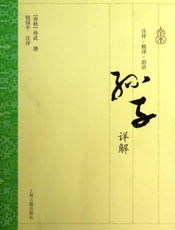 注评·精译·图语
[春秋]孙武 撰
钱国平 注评
孙子
详解
上海古籍出版社